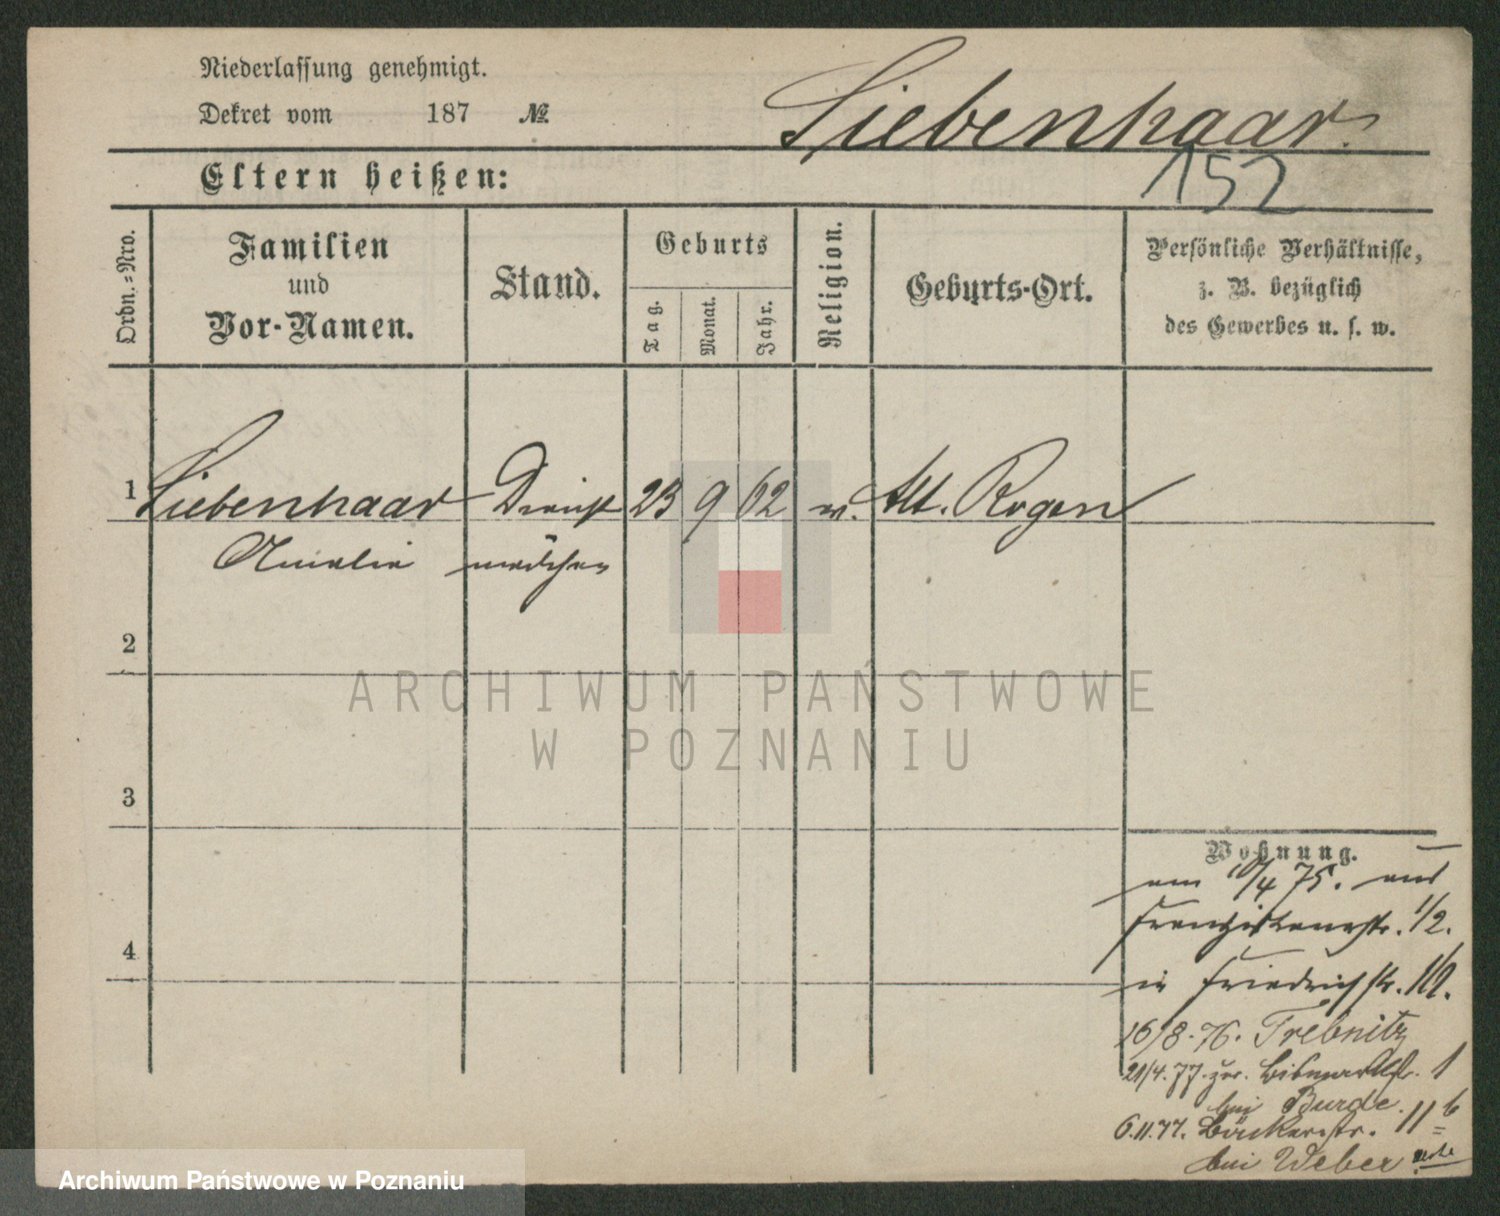 Niederlassung genehmigt.
Dekret vom 187 №
Liebenhaar.
152
Eltern heißen:
Ordn.-Nro.
Familien
und
Vor-Namen.
Stand.
Geburts
Tag.
Monat.
Jahr.
Religion.
Geburts-Ort.
Persönliche Verhältnisse,
z. B. bezüglich
des Gewerbes u. s. w.
1 Liebenhaar Dienst 23 9 62 Alt. Rogen
Amalie mädchen
2
3
4
Wohnung.
am 10/4 75. aus
Franziskanerstr. 1/2.
in Friedrichstr.
16/8. 76. Trebnitz
21/4. 77. zur. Bismarckstr. 1
bei Burde.
6.11.77. Bäckerstr. 11b
bei Weber
ARCHIWUM PAŃSTWOWE
W POZNANIU
Archiwum Państwowe w Poznaniu